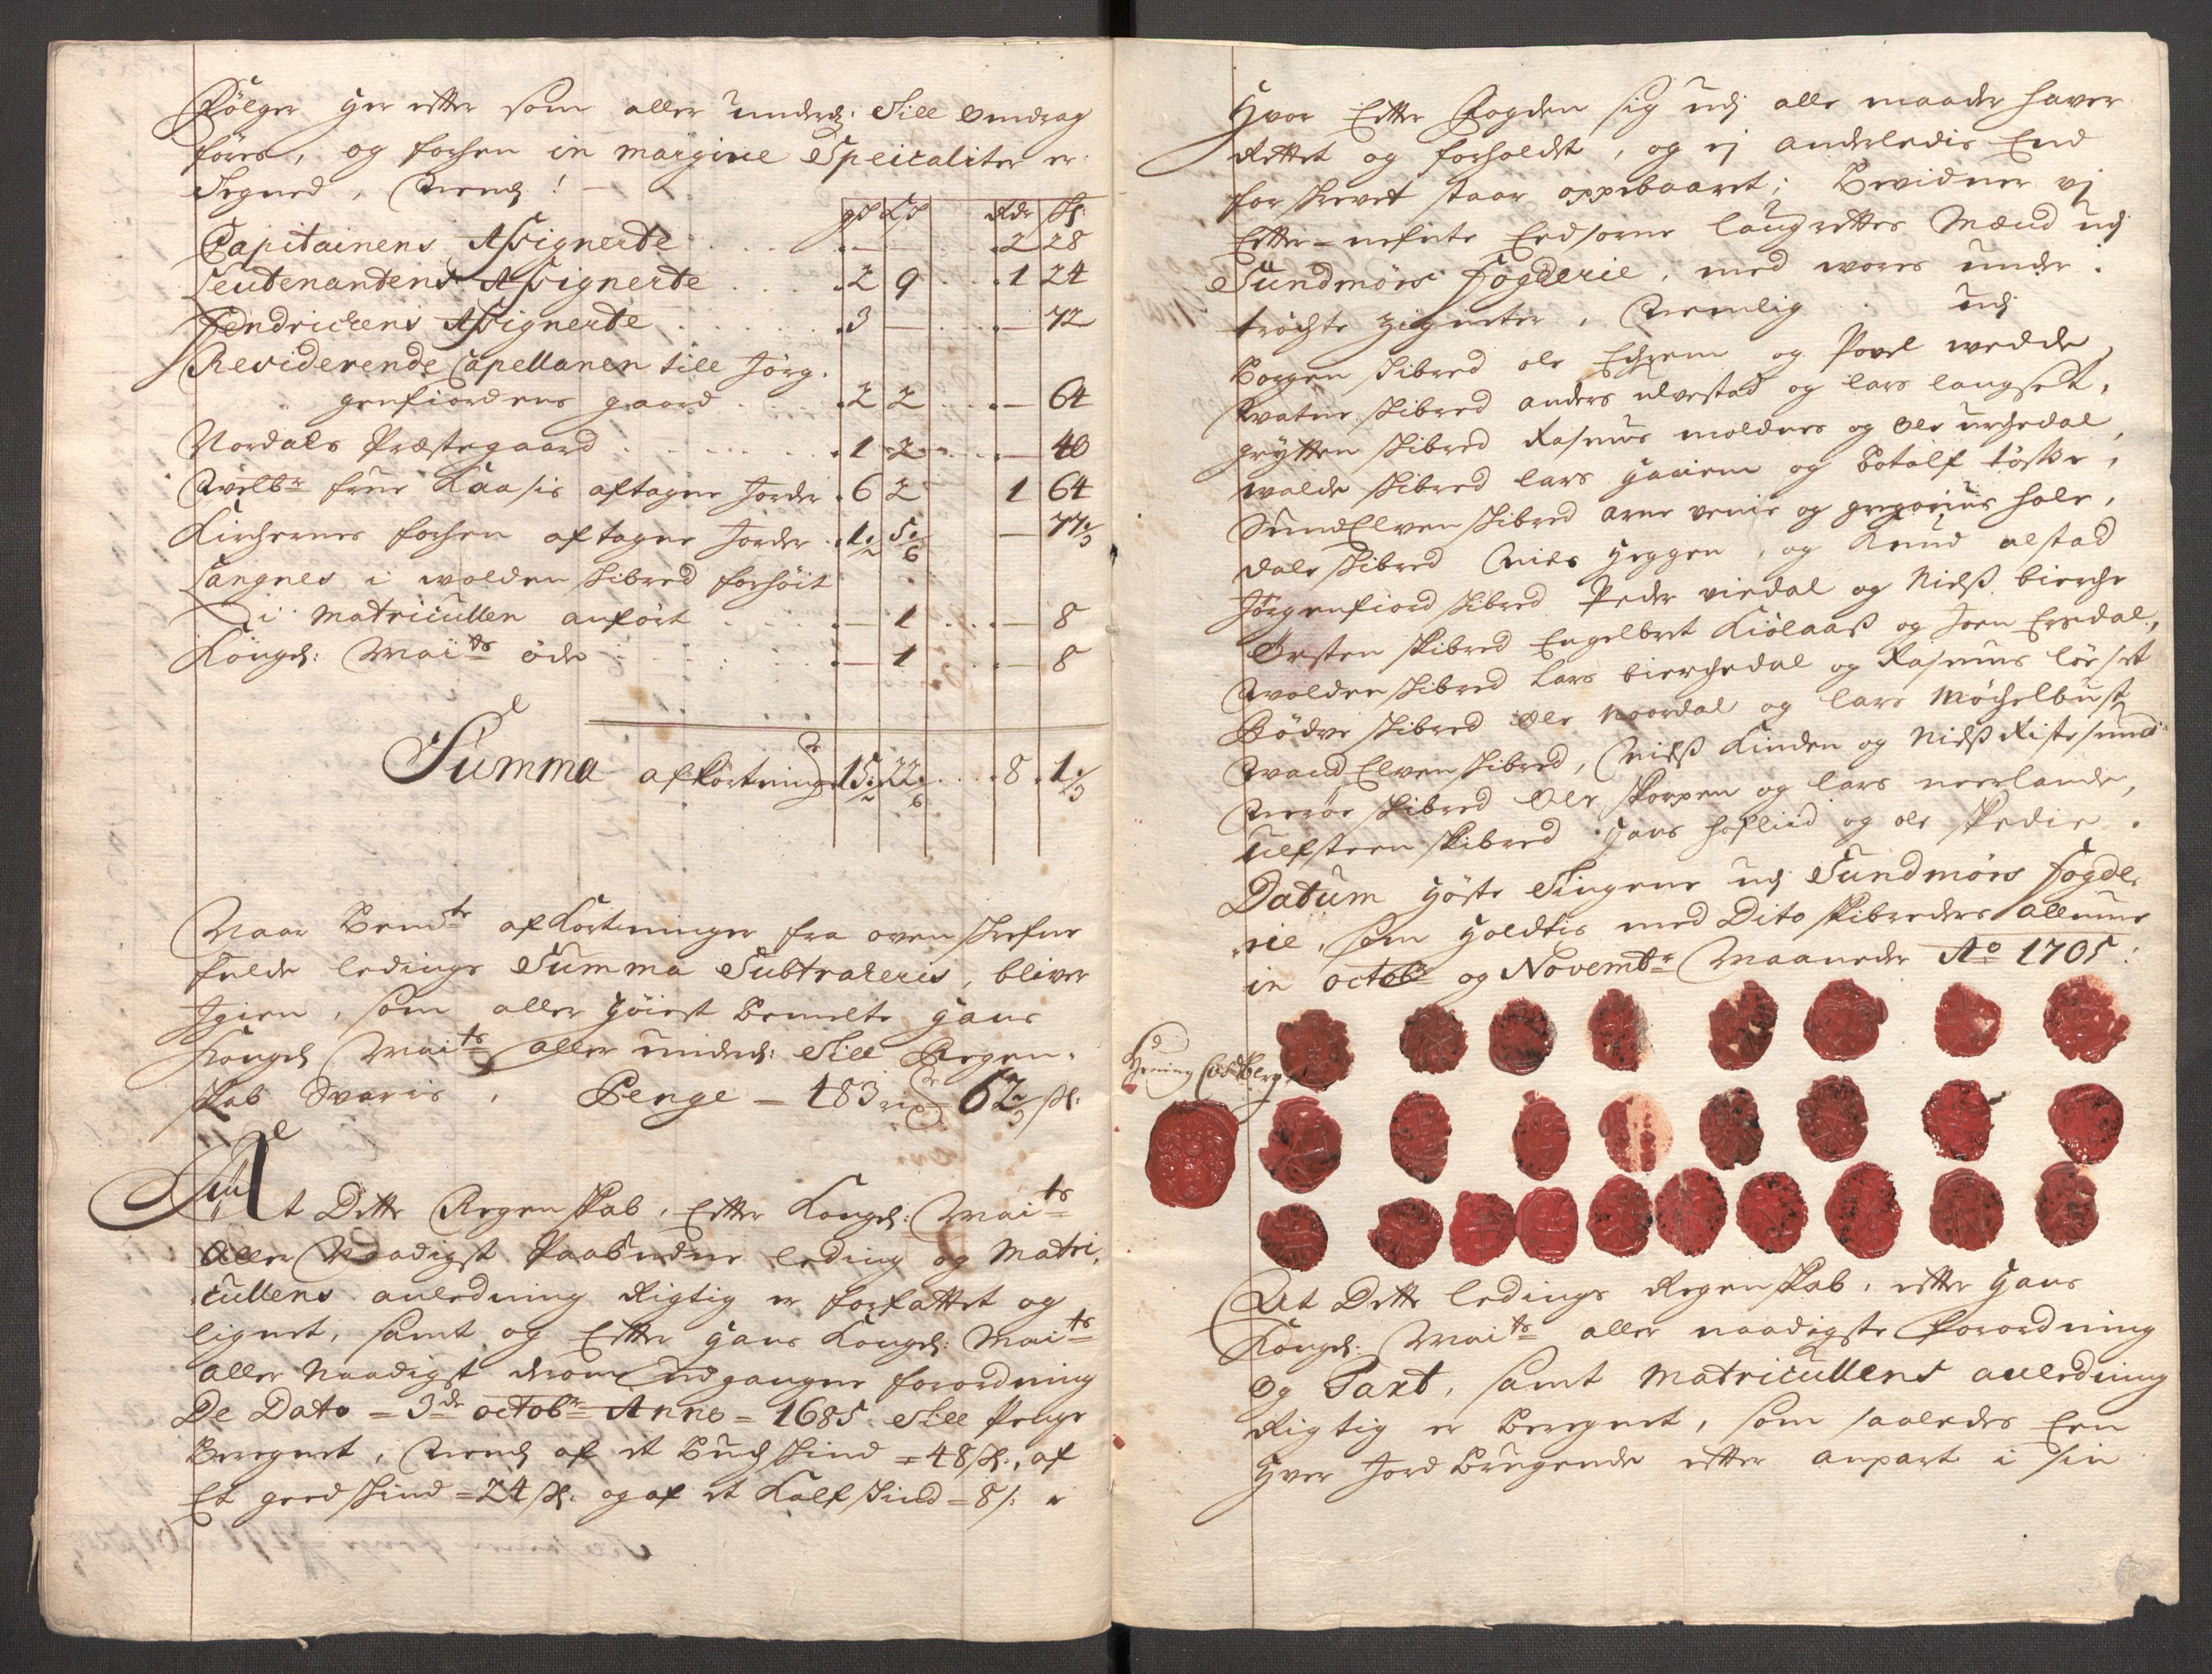 Følger her effter som aller underd: Till omdrag
føres, og forhen in margine Speicaliter er
Tegned, Neml:
gs Ls Rdr sk:
Capitainens Assignerte 2 28
Leutenantens Assignerte 2 9 1 24
Fendrichens Assignerte 3 — 72
Residerende Capellanen till Jørg:
genfiordens gaard 2 2 — 64
Nordals Præstegaard 1 2 — 40
Welbr frue Kaasis aftagne Jorder 6 2 1 64
Kirchernes forhen aftagne Jorder 1 5 — 77
Langnes i wolden skibred forhøit
i Matricullen anført — 1 — 8
Kongl: Maits øde — 1 — 8
Summa afkortning 15 22 8 1
Naar Bemte afkortninger fra oven skrefne
fulde ledings Summa Subtraheris, bliver
Igien, som aller høiest bemelte hans
Kongl Maits aller underd: Till Regen-
skab Svaris, Penge = 483 rd 62 sk:
At Dette Regenskab, Effter Kongl: Maits
Aller Naadigst Paabudne leding og Matri-
cullens anledning Rigtig er forfattet og
lignet, samt og Effter hans Kongl: Maits
aller Naadigst derom udgangne forordning
De Dato = 3de octobr Anno = 1685. Till Penge
Beregnet, Neml af et Buchskind = 48 sk:, af
Et geedskind = 24 sk: og af et Kalfskind = 8 s: r
Hvor Effter Fogden sig udj alle maader haver
Rettet og forholdt, og ej anderledis End
forskrevet staar oppebaaret; Bevidner vj
Effter-nefnte Eedsorne laugrettes Mænd udj
Sundmørs Fogderie, med wores under:
trøchte zigneter, Nemlig udj
Borgen skibred ole Echrem og Povel wedde,
Watne skibred anders ulvestad og lars langset,
grytten skibred Rasmus moldnes og Ole urchedal,
walde skibred lars haaiem og Botolf tøsse,
SundElven skibred arne venie og gregorius hole,
dale skibred Niels heggen, og Knud alstad
Jørgenfiord skibred Peder viedal og Nielß bierche
Ørsten skibred Engelbret Kiølaaß og Joen Ersdal,
Wolden skibred Lars bierchedal og Rasmus løeset
Rødve skibred Ole Noordal og lars Møchelbust
WandElven skibred, Nielß Kinden og Nielß Ristesund
Nerøe skibred Ole skorpen og lars neerlande,
Ulfsteen skibred hans hoflid og ole skedie.
Datum høste Tingene udj Sundmørs fogde-
rie, som holdtis med Dito skibreders allmue
in octobr og Novembr Maaneder Ao 1705:
Hening Castberg
At Dette ledings Regenskab, effter hans
Kongl: Maits aller naadigste forordning
Og Taxt, samt Matricullens anledning
Rigtig er beregnet, som saaledes Een
hver Jord Brugende effter anpart i sin